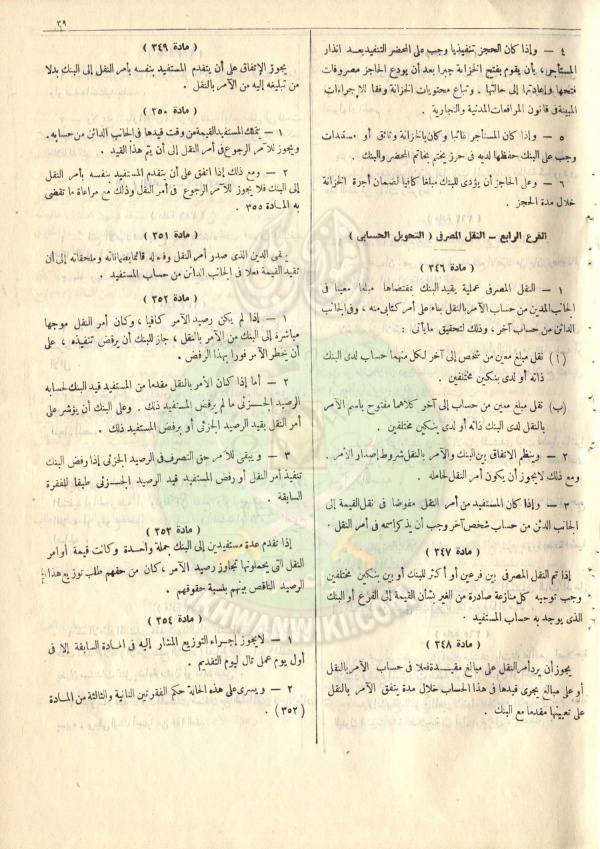 ٣٩
٤ — وإذا كان الحجز تنفيذيا وجب على المحضر التنفيذ بعد انذار
المستأجر، بأن يقوم بفتح الخزانة جبرا بعد أن يودع الحاجز مصروفات
فتحها وإعادتها إلى حالتها . وتباع محتويات الخزانة وفقا للإجراءات
المبينة فى قانون المرافعات المدنية والتجارية .
٥ — وإذا كان المستأجر غائبا وكان بالخزانة وثائق أو مستندات
وجب على البنك حفظها لديه فى حرز يختم بخاتم المحضر والبنك .
٦ — وعلى الحاجز أن يؤدى للبنك مبلغا كافيا لضمان أجرة الخزانة
خلال مدة الحجز .
الفرع الرابع — النقل المصرفى ( التحويل الحسابى )
( مادة ٣٤٦ )
١ — النقل المصرفى عملية يقيد البنك بمقتضاها مبلغا معينا فى
الجانب المدين من حساب الآمر بالنقل بناء على أمر كتابى منه ، وفى الجانب
الدائن من حساب آخر ، وذلك لتحقيق مايأتى :
( ا ) نقل مبلغ معين من شخص إلى آخر لكل منهما حساب لدى البنك
ذاته أو لدى بنكين مختلفين .
(ب) نقل مبلغ معين من حساب إلى آخر كلاهما مفتوح باسم الآمر
بالنقل لدى البنك ذاته أو لدى بنكين مختلفين .
٢ — وينظم الاتفاق بين البنك والآمر بالنقل شروط إصدار الأمر .
ومع ذلك لايجوز أن يكون أمر النقل لحامله .
٣ — وإذا كان المستفيد من أمر النقل مفوضا فى نقل القيمة إلى
الجانب الدائن من حساب شخص آخر وجب أن يذكر اسمه فى أمر النقل .
( مادة ٣٤٧ )
إذا تم النقل المصرفى بين فرعين أو أكثر للبنك أو بين بنكين مختلفين
وجب توجيه كل منازعة صادرة من الغير بشأن القيمة إلى الفرع أو البنك
الذى يوجد به حساب المستفيد .
( مادة ٣٤٨ )
يجوز أن يرد أمر النقل على مبالغ مقيدة فعلا فى حساب الآمر بالنقل
أو على مبالغ يجرى قيدها فى هذا الحساب خلال مدة يتفق الآمر بالنقل
على تعيينها مقدما مع البنك .
( مادة ٣٤٩ )
يجوز الاتفاق على أن يتقدم المستفيد بنفسه بأمر النقل إلى البنك بدلا
من تبليغه إليه من الآمر بالنقل .
( مادة ٣٥٠ )
١ — يتملك المستفيد القيمة من وقت قيدها فى الجانب الدائن من حسابه .
ويجوز للآمر الرجوع فى أمر النقل إلى أن يتم هذا القيد .
٢ — ومع ذلك إذا اتفق على أن يتقدم المستفيد بنفسه بأمر النقل
إلى البنك فلا يجوز للآمر الرجوع فى أمر النقل وذلك مع مراعاة ما تقضى
به المادة ٣٥٥ .
( مادة ٣٥١ )
يبقى الدين الذى صدر أمر النقل وفاء له قائما بضماناته وملحقاته إلى أن
تقيد القيمة فعلا فى الجانب الدائن من حساب المستفيد .
( مادة ٣٥٢ )
١ — إذا لم يكن رصيد الآمر كافيا ، وكان أمر النقل موجها
مباشرة إلى البنك من الآمر بالنقل ، جاز للبنك أن يرفض تنفيذه ، على
أن يخطر الآمر فورا بهذا الرفض .
٢ — أما إذا كان الأمر بالنقل مقدما من المستفيد قيد البنك لحسابه
الرصيد الجزئى ما لم يرفض المستفيد ذلك . وعلى البنك أن يؤشر على
أمر النقل بقيد الرصيد الجزئى أو برفض المستفيد ذلك .
٣ — ويبقى للآمر حق التصرف فى الرصيد الجزئى إذا رفض البنك
تنفيذ أمر النقل أو رفض المستفيد قيد الرصيد الجزئى طبقا للفقرة
السابقة .
( مادة ٣٥٣ )
إذا تقدم عدة مستفيدين إلى البنك جملة واحدة وكانت قيمة أوامر
النقل التى يحملونها تجاوز رصيد الآمر ، كان من حقهم طلب توزيع هذا
الرصيد الناقص بينهم بنسبة حقوقهم .
( مادة ٣٥٤ )
١ — لايجوز إجراء التوزيع المشار إليه فى المادة السابقة إلا فى
أول يوم عمل تال ليوم التقديم .
٢ — ويسرى على هذه الحالة حكم الفقرتين الثانية والثالثة من المادة
( ٣٥٢ ) .
IKHWANWIKI.COM